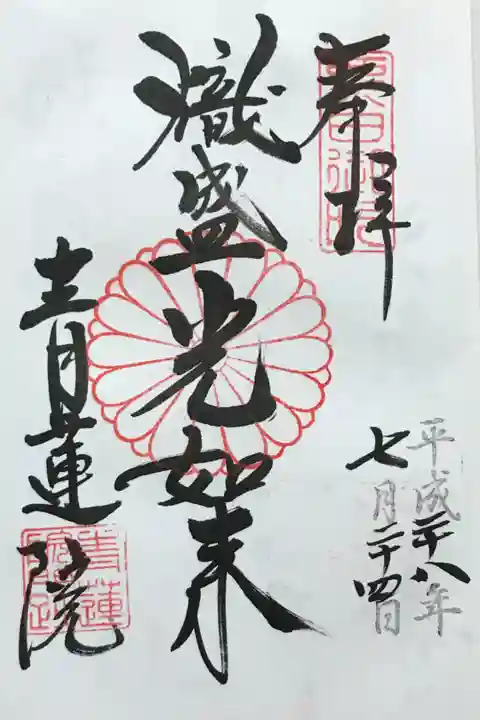 奉拝
平成二十八年
七月二十四日
熾盛光如来
青蓮院
粟田御所
青蓮院跡